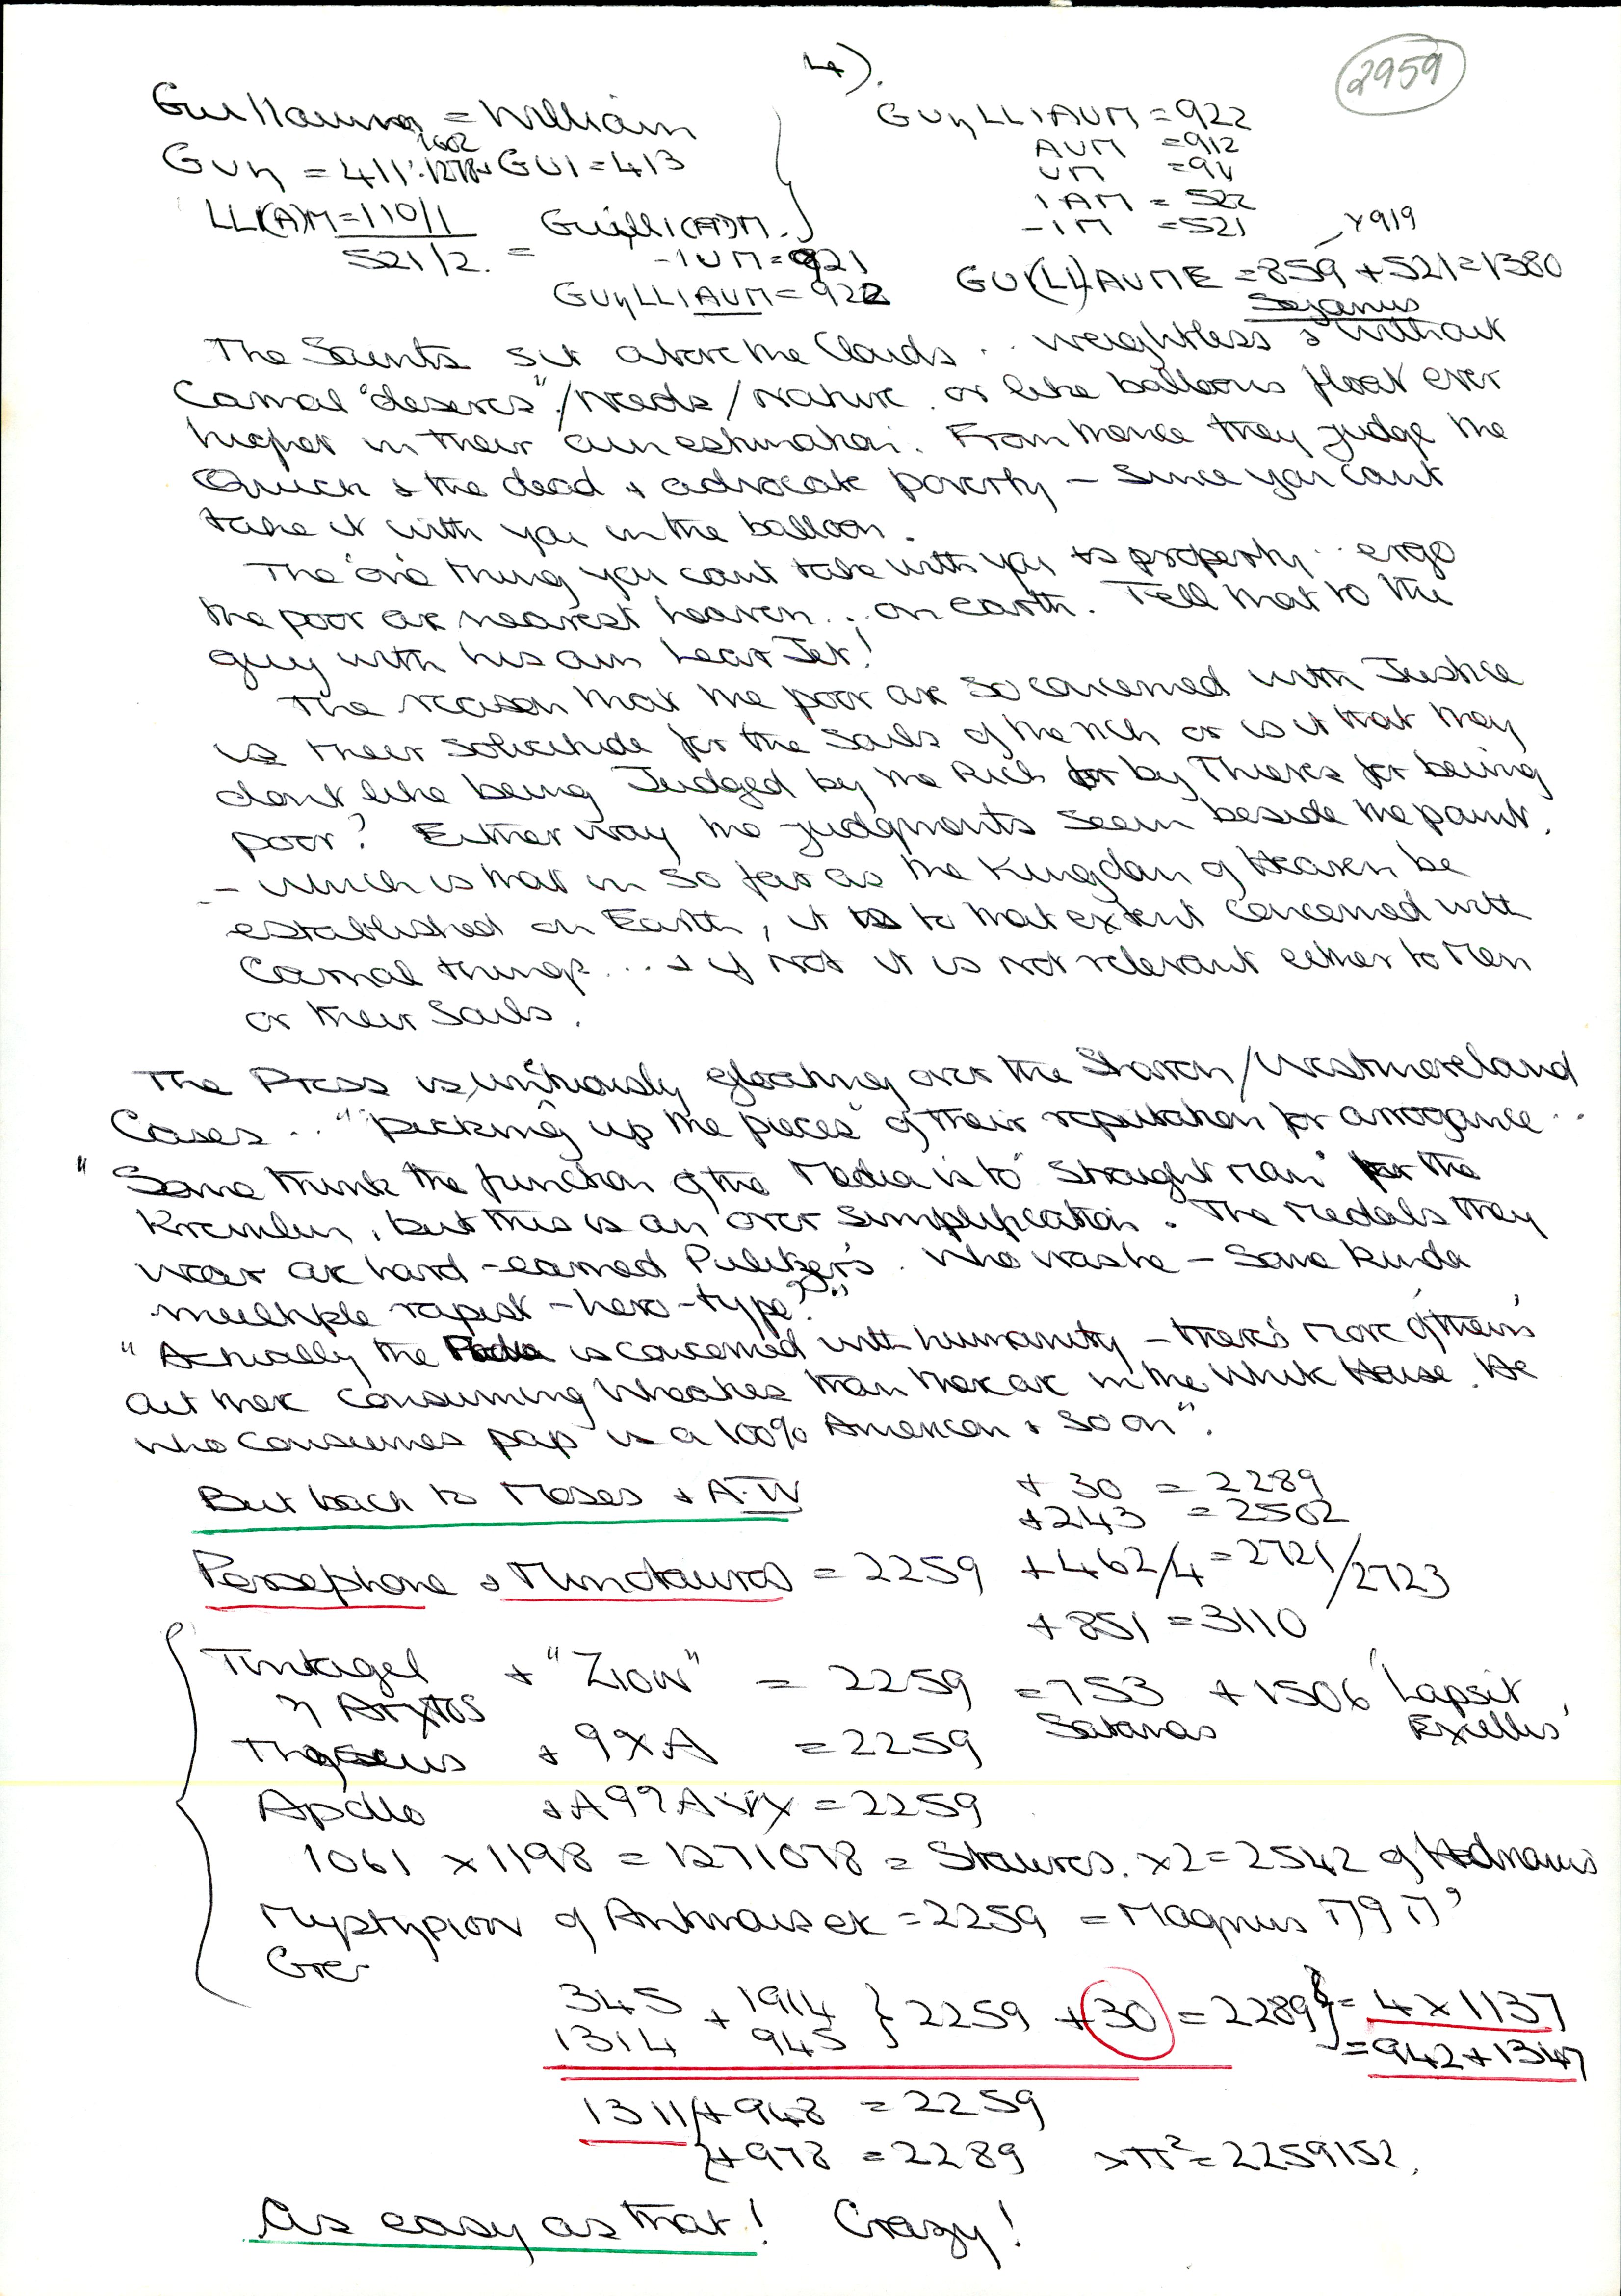 4).
2959
Guillaume = William
GUη = 411 : 1278 GUI = 413
1602
LLI(A)M = 110/1
521/2. = GuηlliI(A)M.
-IUM = 921
GUηLLIAUM = 922
GUηLLIAUM = 922
AUM = 912
UM
IAM = 522
-IM = 521
x919
GU(LL)AUME = 859 + 521 = 1380
Sejanus
The Saints sit above the Clouds .. weightless & without
Carnal "desires"/Needs/Nature. or like balloons float ever
higher in their own estimation. From thence they judge the
Quick & the dead & advocate poverty – since you cant
take it with you in the balloon.
The one thing you cant take with you is property .. ergo
the poor are nearest heaven ... on earth. Tell that to the
guy with his own Lear Jet!
The reason that the poor are so concerned with Justice
is their solicitude for the Souls of the rich or is it that they
dont like being Judged by the Rich or by Thieves for being
poor? Either way the judgments seem beside the point.
– which is that in so far as the Kingdom of Heaven be
established on Earth, it is to that extent concerned with
Carnal things ... & if not it is not relevant either to Men
or their Souls.
The Press is gloating over the Sharon/Westmoreland
Cases .. "picking up the pieces" of their reputation for arrogance ..
"Some think the function of the Media is to "straight man" for the
Kremlin, but this is an over simplification. The Medals they
wear are hard-earned Pulitzer's. Who was he – Some kinda
multiple rapist-hero-type?"
"Actually the Media is concerned with humanity – there's more of them
out there consuming Wheaties than there are in the White House. He
who consumes pap is a 100% American & so on".
But back to Moses & A-W
+ 30 = 2289
+243 = 2502
Persephone & Minotauros = 2259 +462/4 = 2721/2723
+ 851 = 3110
Tintagel + "Zion" = 2259 = 753 + 1506 'Lapsit
η Arxtos Satanas Exillis'
Theseus + 99XA = 2259
Apollo = 2259
1061 x 1198 = 1271078 = Stauros. x2 = 2542 of Hadrianus
of = 2259 = Magnus
Gre
345 + 1914 } 2259 + 30 = 2289 } = 4 x 1137
1314 945 = 942 + 1347
1311 + 948 = 2259
+ 978 = 2289 xπ² = 2259152.
As easy as that! Crazy!